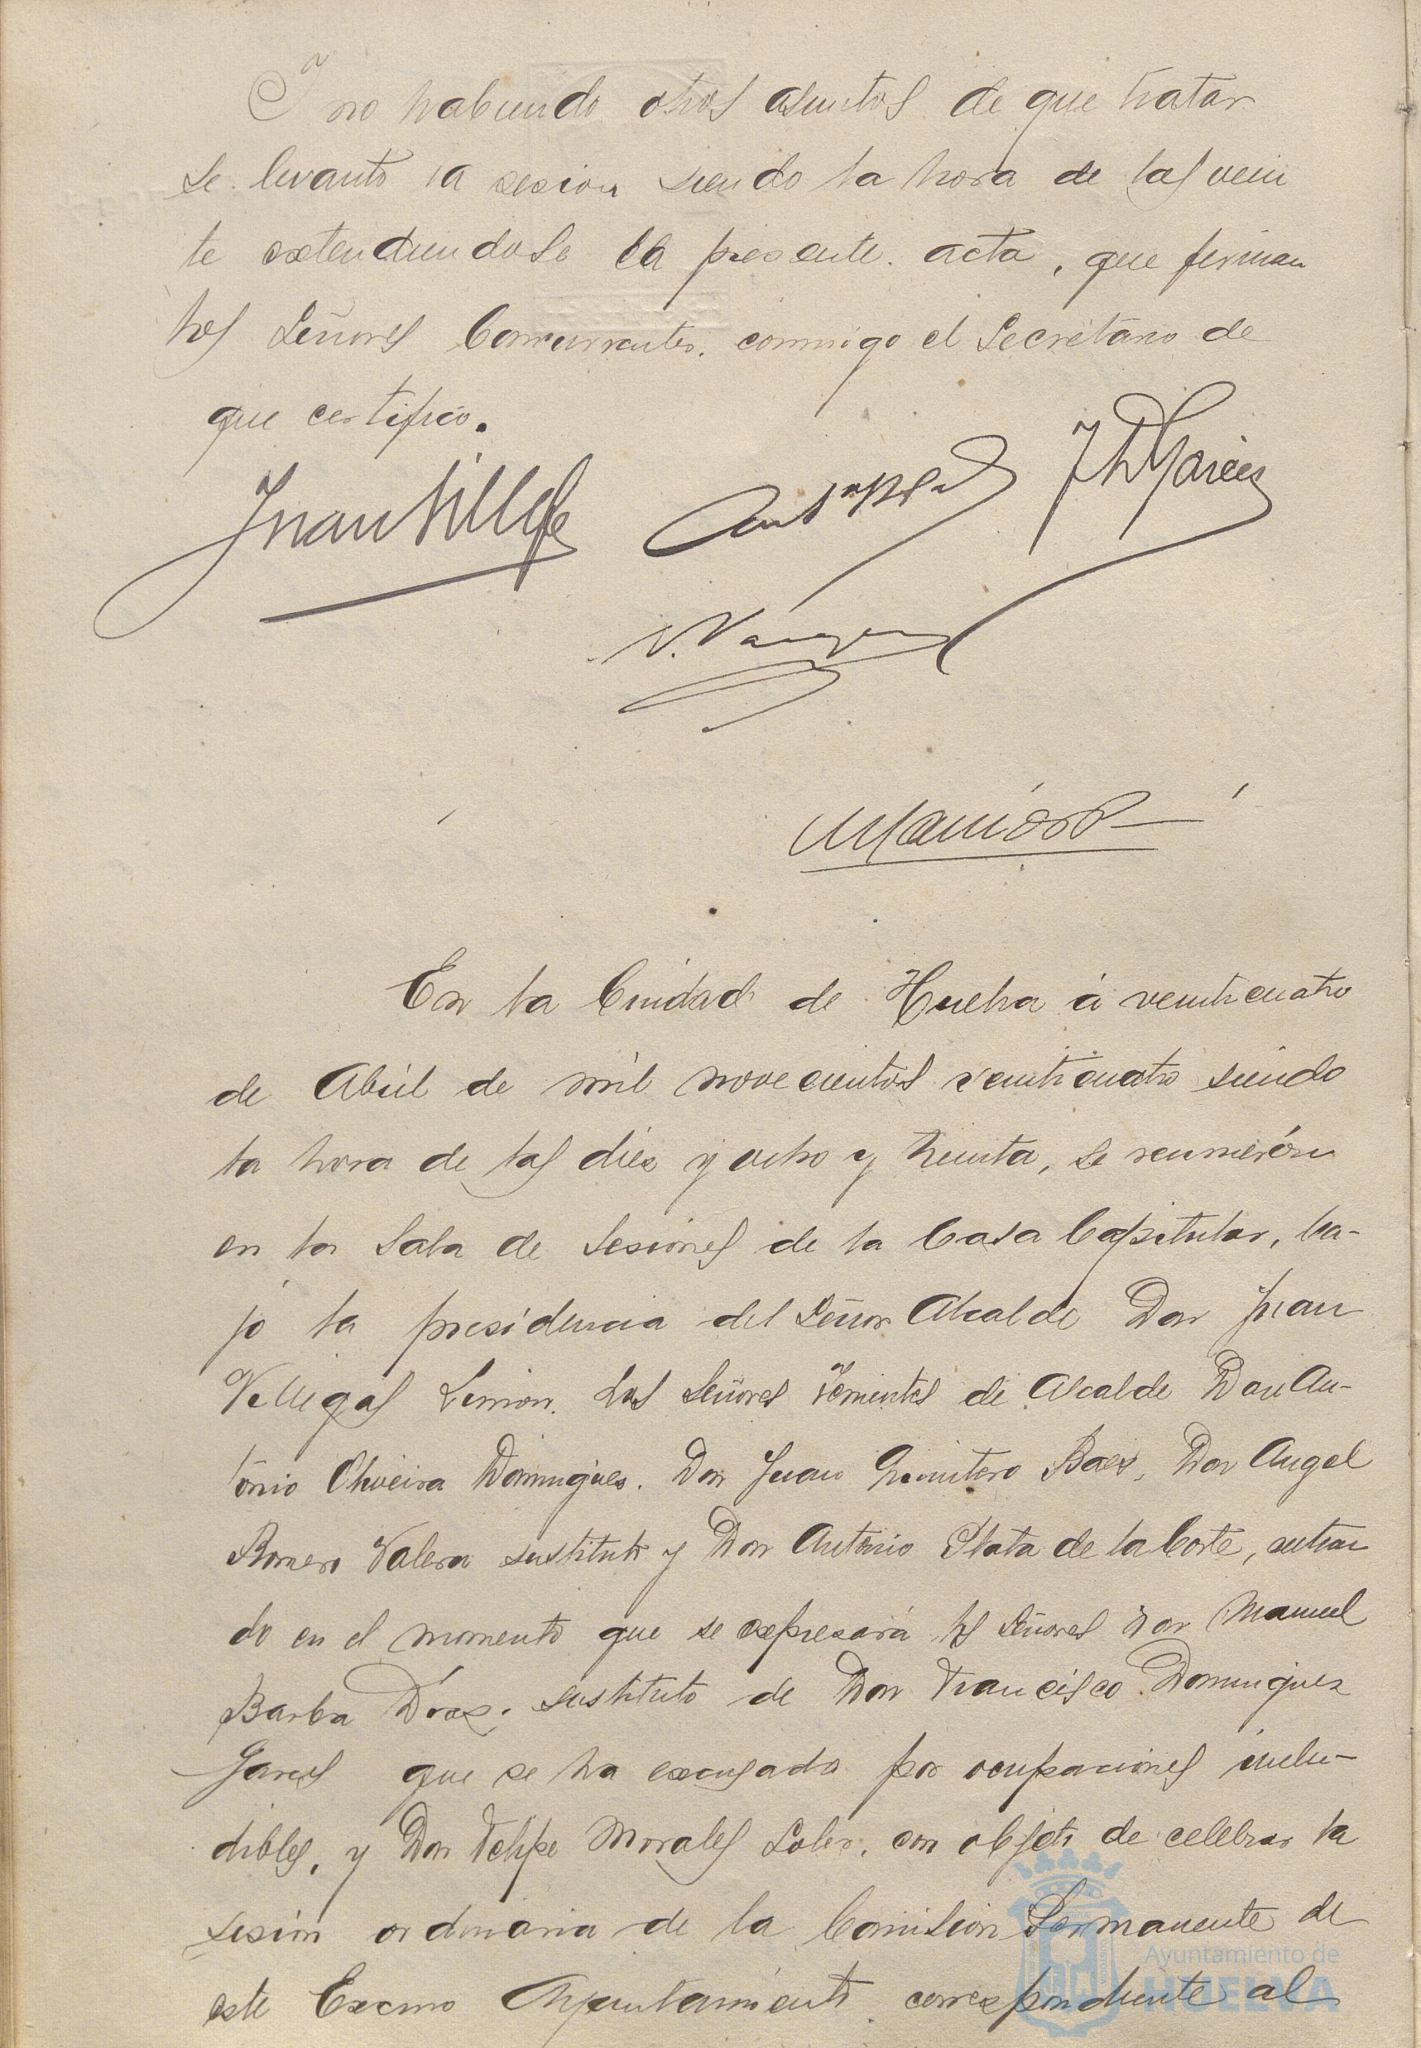 Y no habiendo otros asuntos de que tratar
se levantó la sesion siendo la hora de las vein
te extendiendose la presente acta, que firman
los Señores Concurrentes, conmigo el Secretario de
que certifico.
En la Ciudad de Huelva á veinticuatro
de Abril de mil novecientos veinticuatro siendo
la hora de las diez y ocho y treinta, se reunierón
en la Sala de Sesiones de la Casa Capitular, ba-
jo la presidencia del Señor Alcalde Don Juan
Villegas Limon, los Señores Tenientes de Alcalde Don An-
tonio Oliveira Dominguez, Don Juan Quintero Baez, Don Angel
Romero Valera sustituto y Don Antonio Plata de la Corte, entran
do en el momento que se expresará los Señores Don Manuel
Barba Diaz, sustituto de Don Francisco Dominguez
Garces que se ha excusado por ocupaciones inelu-
dibles, y Don Felipe Morales Soler, con objeto de celebrar la
sesión ordinaria de la Comision Permanente de
este Excmo Ayuntamiento correspondiente al
Ayuntamiento de
HUELVA